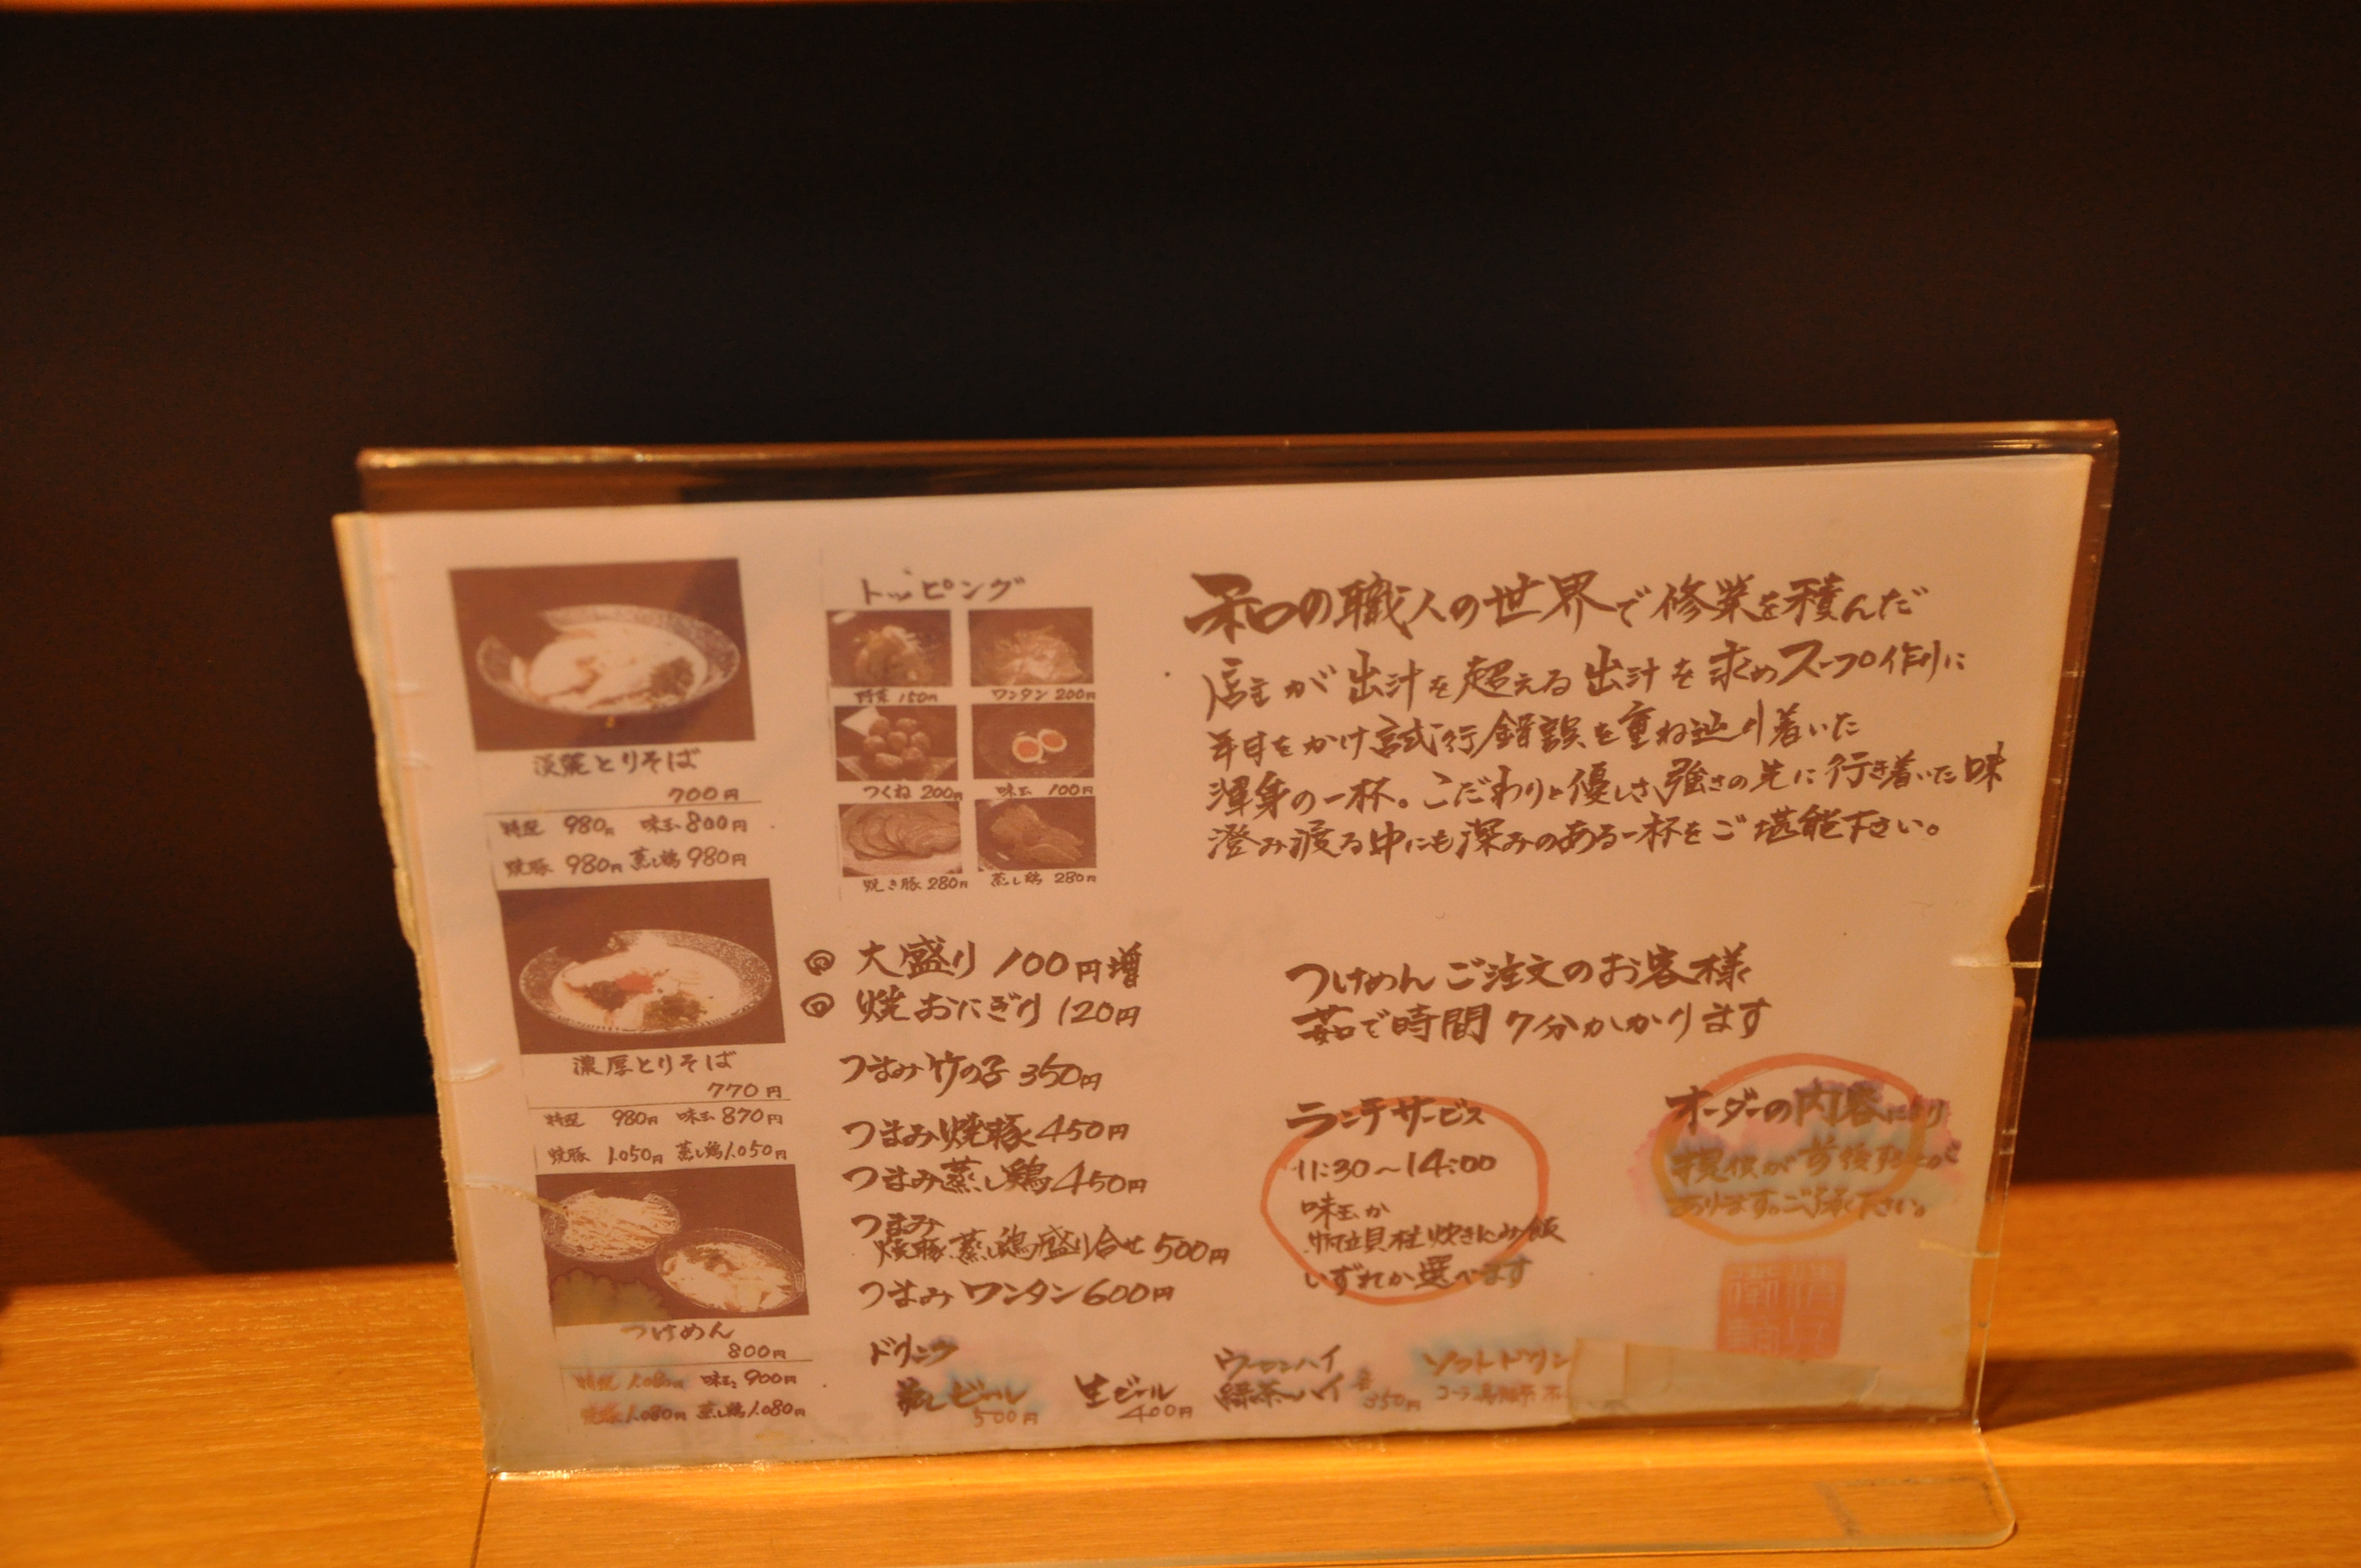 淡麗とりそば
700円
特製 980円 味玉 800円
焼豚 980円 蒸し鶏 980円
濃厚とりそば
770円
特製 980円 味玉 870円
焼豚 1,050円 蒸し鶏 1,050円
つけめん
800円
特製 1,080円 味玉 900円
焼豚 1,080円 蒸し鶏 1,080円
トッピング
野菜 150円 ワンタン 200円
つくね 200円 味玉 100円
焼き豚 280円 蒸し鶏 280円
大盛り 100円増
焼おにぎり 120円
つまみ竹の子 350円
つまみ焼豚 450円
つまみ蒸し鶏 450円
つまみ
焼豚、蒸し鶏盛り合せ 500円
つまみワンタン 600円
ドリンク
ビール 500円
生ビール 400円
ウーロンハイ
緑茶ハイ 各350円
ソフトドリン
コーラ
和の職人の世界で修業を積んだ
店主が出汁を超える出汁を求めスープ作りに
年月をかけ試行錯誤を重ね辿り着いた
渾身の一杯。こだわりと優しさ、強さの先に行き着いた味
澄み渡る中にも深みのある一杯をご堪能下さい。
つけめんご注文のお客様
茹で時間7分かかります
ランチサービス
11:30~14:00
味玉か
帆立貝柱炊きこみ飯
いずれか選べます
オーダーの内容により
提供が前後する事が
あります。ご了承下さい。